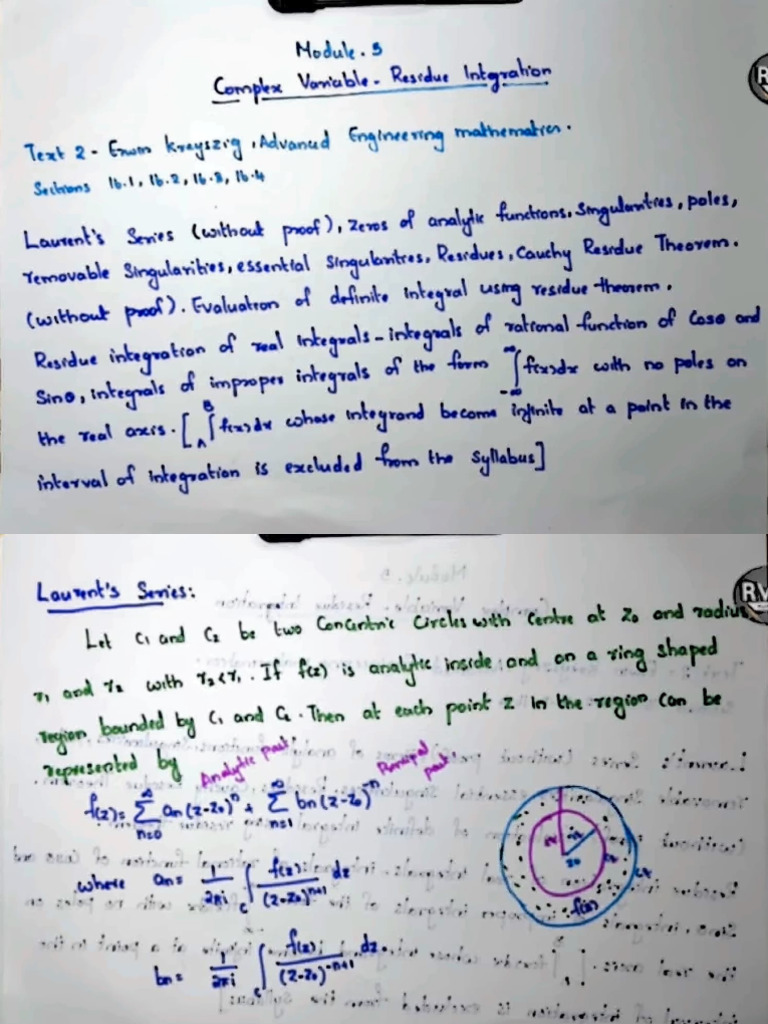 Module.5
Complex Variable - Residue Integration
Text 2 - Erwin Kreyszig, Advanced Engineering mathematics.
Sections 16.1, 16.2, 16.3, 16.4
Laurent's Series (without proof), Zeros of analytic functions, Singularities, poles,
removable Singularities, essential Singularities, Residues, Cauchy Residue Theorem.
(without proof). Evaluation of definite integral using residue theorem.
Residue integration of real Integrals - integrals of rational function of Cosθ and
Sinθ, integrals of improper integrals of the form ∫_{-∞}^{∞} f(x)dx with no poles on
the real axis. [∫_A^B f(x)dx whose integrand become infinite at a point in the
interval of integration is excluded from the syllabus]
Laurent's Series:
Let C1 and C2 be two Concentric Circles with Centre at Z0 and radius
r1 and r2 with r2<r1. If f(z) is analytic inside and on a ring shaped
region bounded by C1 and C2. Then at each point Z in the region can be
represented by
Analytic part Principal part
f(z)= ∑_{n=0}^{∞} an (z-z0)^n + ∑_{n=1}^{∞} bn (z-z0)^{-n}
where an= 1/2πi ∫_c f(z)/(z-z0)^{n+1} dz
bn= 1/2πi ∫_c f(z)/(z-z0)^{-n+1} dz.
z0
f(z)